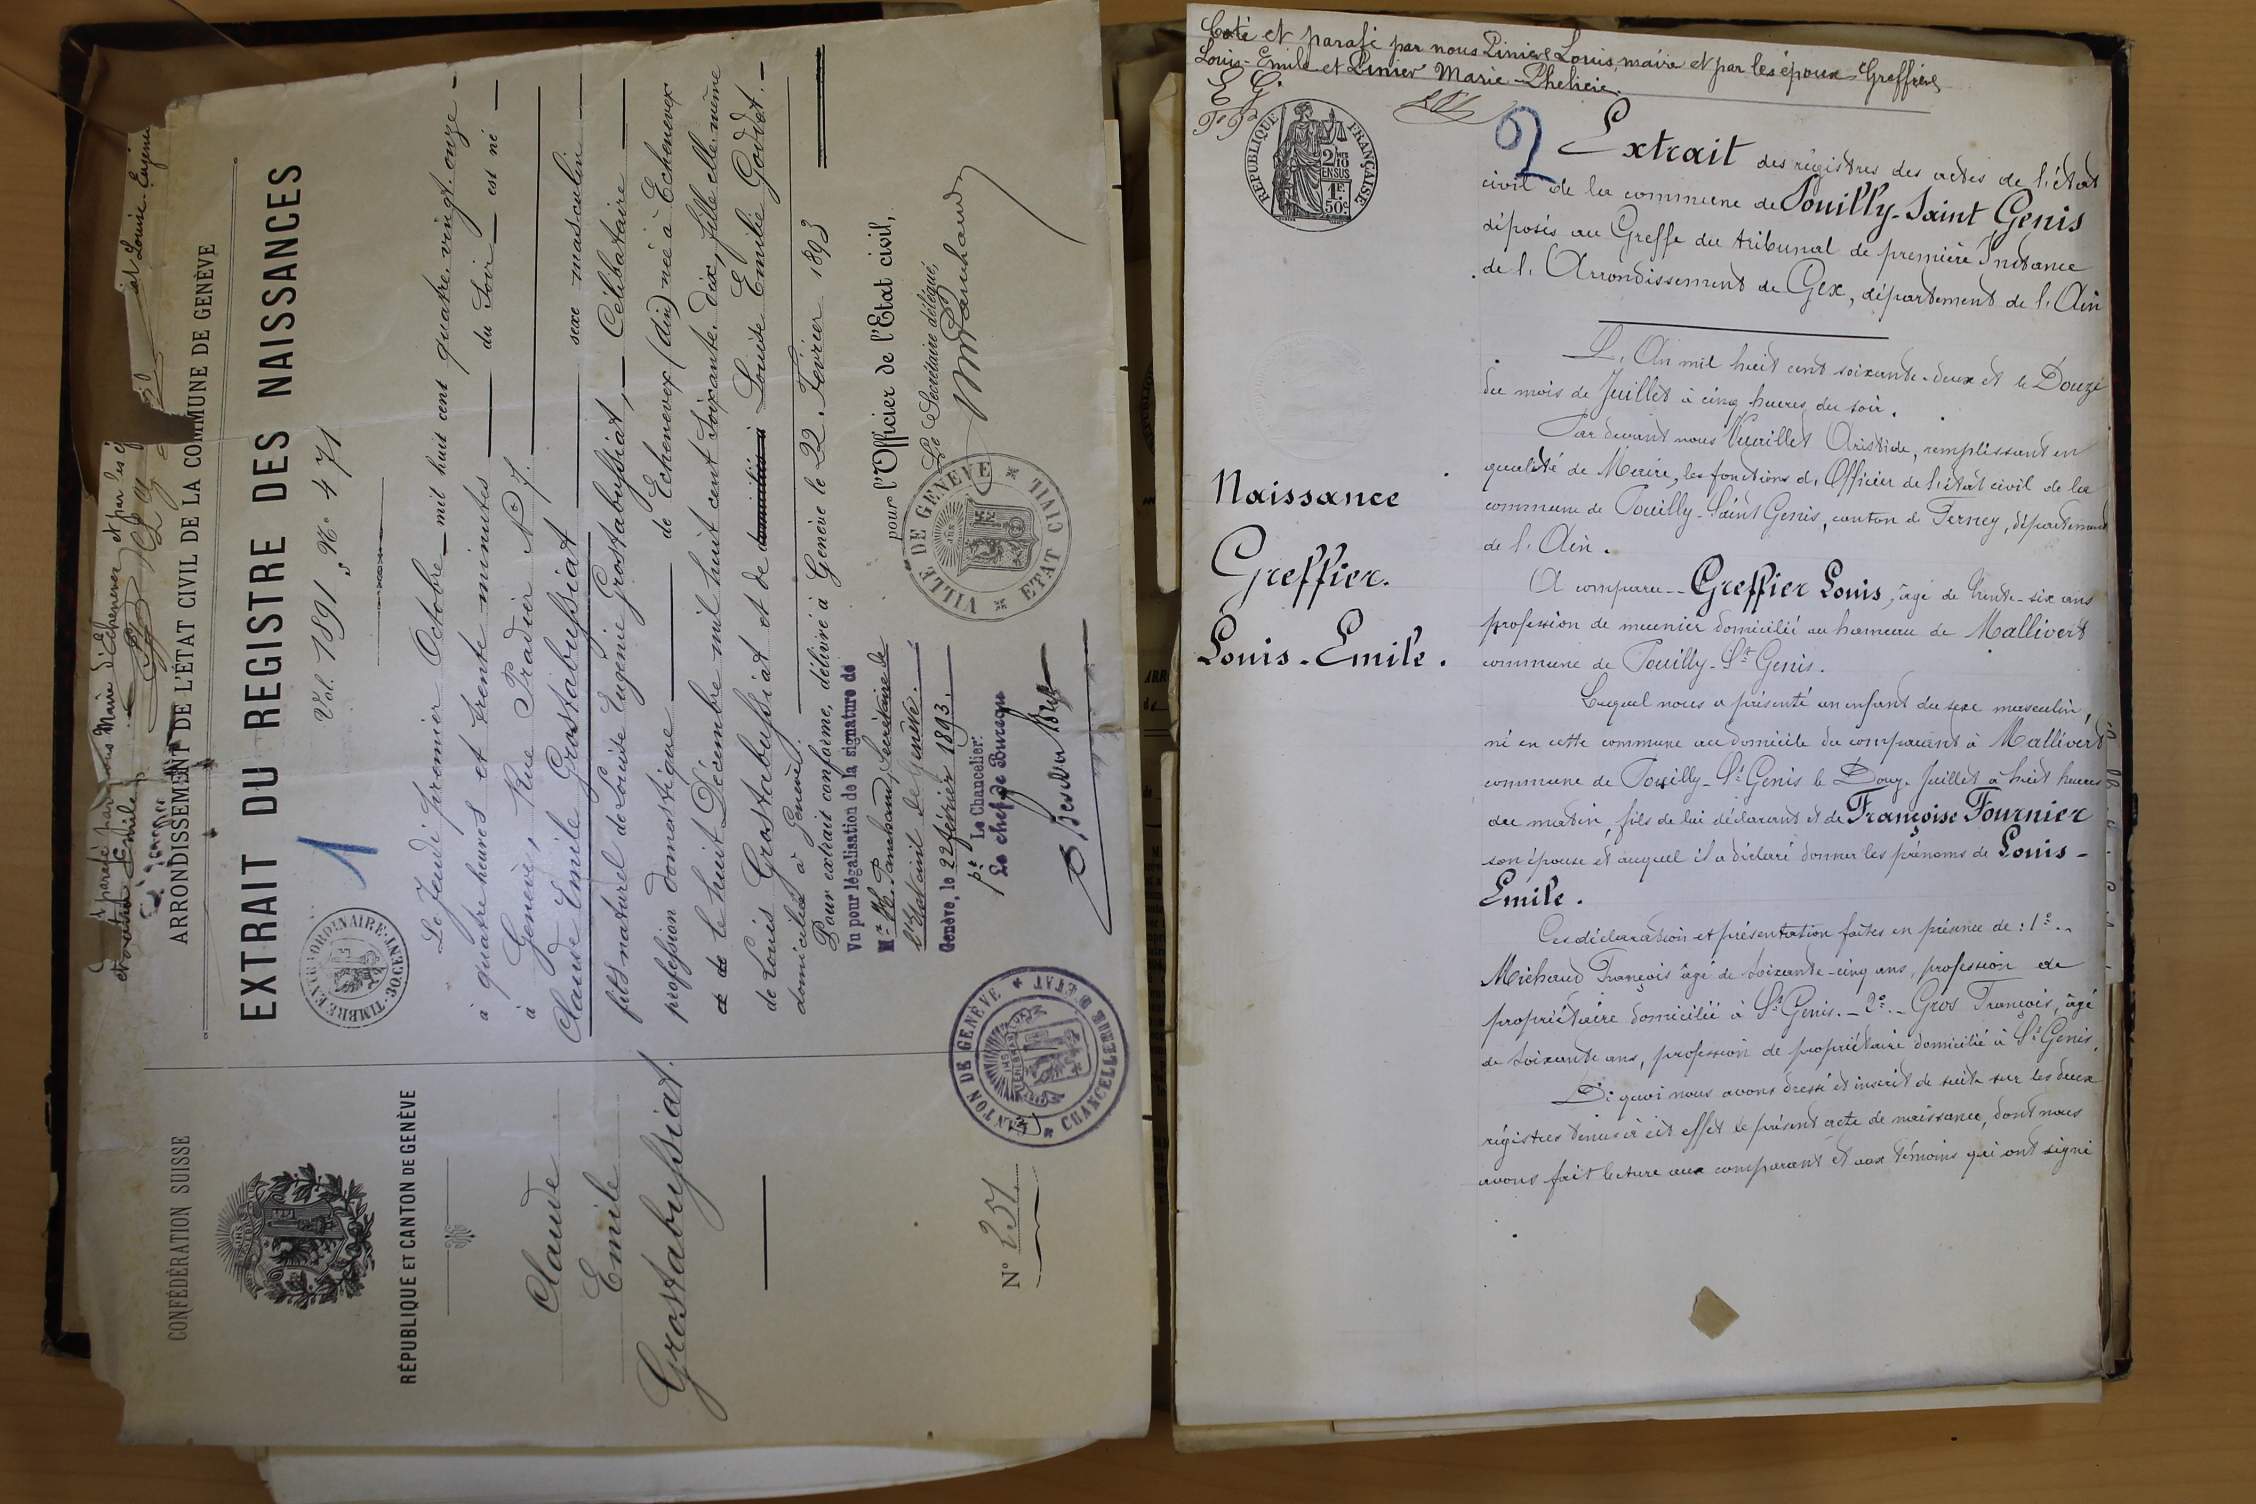 et parafé par nous Maire d'Echenevex et par les
et Louise Eugénie
CONFÉDÉRATION SUISSE
RÉPUBLIQUE ET CANTON DE GENÈVE
Claude
Emile
Grostabussiat.
N° 251
ARRONDISSEMENT DE L'ÉTAT CIVIL DE LA COMMUNE DE GENÈVE
EXTRAIT DU REGISTRE DES NAISSANCES
Vol. 1891, N° 471
1
TIMBRE EXTRAORDINAIRE
Le Jeudi premier Octobre — mil huit cent quatre-vingt-onze —
à quatre heures et trente minutes — du Soir — est né —
à Genève, Rue Pradier No 7.
Claude Emile Grostabussiat — sexe masculin —
fils naturel de Louise Eugénie Grostabussiat, — Célibataire —
profession domestique — de Echenevex (Ain) née à Echenevex
et de le huit Décembre mil huit cent soixante-dix, fille elle-même
de Louis Grostabussiat et de domiciliés à Louise Emilie Goddet. —
domiciliée à Genève.
Pour extrait conforme, délivré à Genève le 22 Février 1893
pour l'Officier de l'Etat civil,
Le Secrétaire délégué,
Vu pour légalisation de la signature de
Mr M. Panchaud, Secrétaire de
l'Etat civil de Genève.
Genève, le 22 février 1893.
pr Le Chancelier:
Le chef de Bureau
VILLE DE GENÈVE * ETAT CIVIL *
CANTON DE GENÈVE * CHANCELLERIE D'ETAT *
Coté et parafé par nous Pinier Louis, maire et par les époux Greffier
Louis-Emile et Pinier Marie-Phelicie.
E G.
RÉPUBLIQUE FRANÇAISE
2/10 EN SUS
1F. 50c
2
Extrait des régistres des actes de l'état
civil de la commune de Pouilly-Saint Genis
déposés au Greffe du tribunal de première Instance
de l'Arrondissement de Gex, département de l'Ain
L'An mil huit cent soixante-deux et le Douze
du mois de Juillet à cinq heures du soir.
Par devant nous Vuaillet Aristide, remplissant en
qualité de Maire, les fonctions d'Officier de l'état civil de la
commune de Pouilly-Saint Genis, canton de Ferney, département
de l'Ain.
Naissance
Greffier.
Louis-Emile.
A comparu -- Greffier Louis, âgé de trente-six ans
profession de meunier domicilié au hameau de Mallivert
commune de Pouilly-St Genis.
Lequel nous a présenté un enfant du sexe masculin,
né en cette commune au domicile du comparant à Mallivert
commune de Pouilly-St Genis le Douze Juillet à huit heures
du matin, fils de lui déclarant et de Françoise Fournier
son épouse et auquel il a déclaré donner les prénoms de Louis-
Emile.
Ces déclaration et présentation faites en présence de: 1°..
Michaud François âgé de soixante-cinq ans, profession de
propriétaire domicilié à St Genis. — 2°. — Gros François, âgé
de soixante ans, profession de propriétaire domicilié à St Genis.
De quoi nous avons dressé et inscrit de suite sur les deux
régistres tenus à cet effet le présent acte de naissance, dont nous
avons fait lecture aux comparant et aux témoins qui ont signé